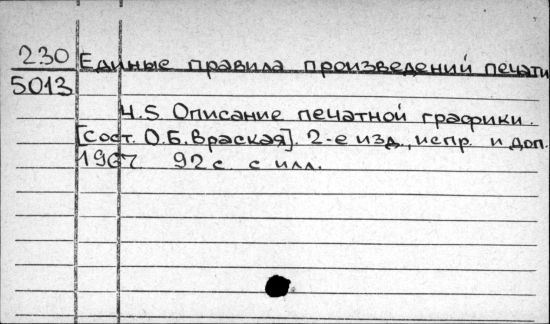 230 Единые правила произведений печати
5013
Ч.5 Описание печатной графики.
[Сост. О.Б.Враская]. 2-е изд., испр. и доп.
1967. 92 с. с илл.